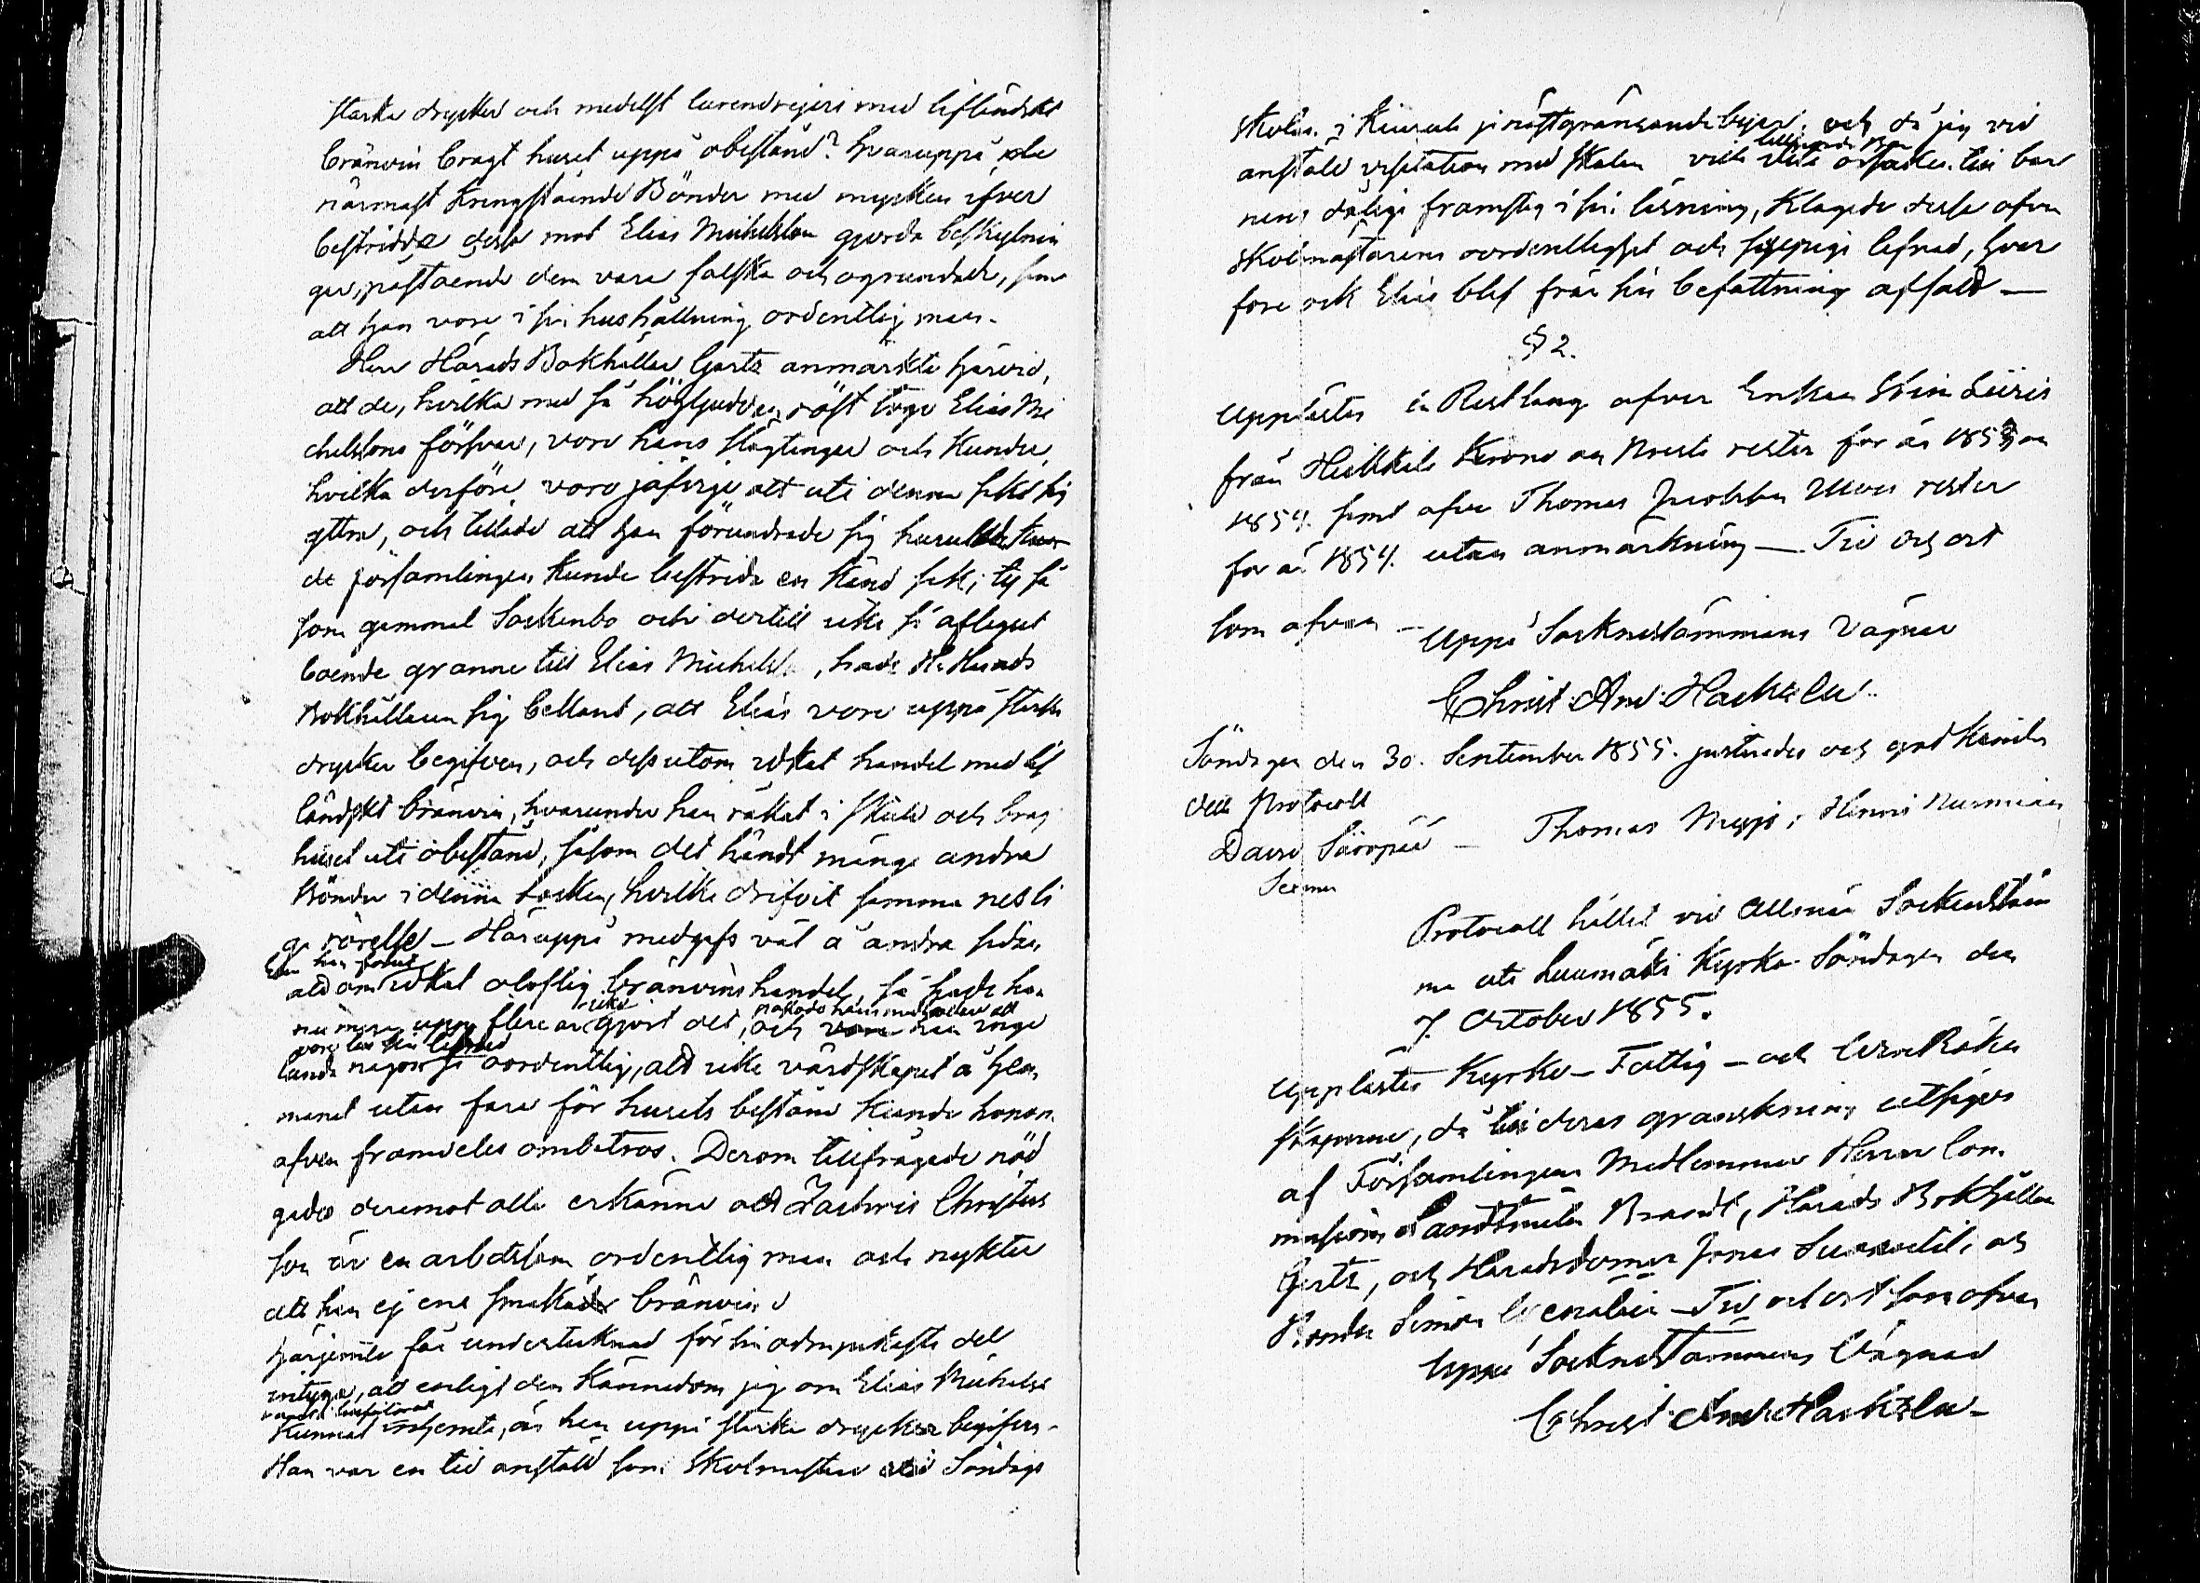 starka drycker och medelst lurendrejeri med lifländskt
bränvin bragt huset uppå obestånd? Hvaruppå de
närmast kringstående Bönder med mycken ifver
bestridde desse mot Elias Michelsson gjorda beskylnin
gar, påstående dem vara falska och ogrundade, samt
att han vore i sin hushållning ordentlig man.
Herr Härads Bokhållar Gertz anmärkte härvid,
att de, hvilka med så högljudd röst togo Elias Mi
chelssons försvar, voro hans slägtingar och kunder,
hvilka derföre voro jäfvige att uti denna sak sig
yttra, och tillade att han förundrade sig huru
de församlingen kunde bestrida en känd sak; ty så
som gammal Sockenbo och dertill icke så aflägset
boende granne till Elias Michelss, hade Hr Härads
Bokhållaren sig bekant, att Elias vore uppå starka
drycker begifven, och dessutom idkat handel med lif
ländskt bränvin, hvarunder han råkat i skuld och brag
huset uti obestånd, såsom det händt många andra
Bönder i denna Socken, hvilka drifvit samma nesli
ga rörelse – Häruppå medgafs väl å andra sidan
han förut
att om idkat olaflig bränvins handel, så hade han
icke påstods hans motvilja att
nu mera uppå flere år gjort det, och
vore till sin lefnad
lunda någon så oordentlig, att icke värdskapet å hem
manet utan fara för husets bestånd kunde honom
äfven framdeles ombetros. Derom tillfrågade nöd
gades deremot alla erkänna att Zachris Christers
son är en arbetsam ordentlig man och nykter
att han ej ens smakade bränvin
Härjemte får undertecknad för sin del
intyga, att enligt den kännedom jag om Elias Michelss
kunnat inhemta, är han uppå starka drycker begifven.
Han var en tid anstäld som Skolmästare vid Söndags
skolan i Keurula j näst gränsande byar; och då jag vid
anstäld visitation med skolan ville veta orsaken till bar
nens dåliga framsteg i sin läsning, klagade desse öfver
skolmästarens oordentlighet och supiga lefnad, hvar
före ock Elias blef från sin befattning afsatt —
§ 2.
Upplästes en Restlängd öfver Enkan Stin Liiris
från Heikkilä Krono och Prest rester för år 1853 och
1854. samt öfver Thomas Jacobsson Utters rester
för år 1854. utan anmärkning — Tid och ort
som ofvan — Uppå Socknestämmans Vägnar
Christ. And. Hackzell.
Söndagen den 30. September 1855. justerades och godkändes
detta Protocoll
David Säropää — Thomas Meyjs; Henric Nurminen
Sexman
Protocoll hållet vid Allmän Sockenstäm
ma uti Luumäki Kyrka Söndagen den
7. October 1855.
Upplästes Kyrko- Fattig – och Räken
skaperne, då till deras granskning utsågos
af Församlingens Medlemmar Herrar Com
missions Landtmätar Brandt, Härads Bokhållar
Gertz, och Häradsdomar Jonas och
Bonden Simon – Tid och ort som ofvan
Uppå Socknestämmans Vägnar
Christ. And. Hackzell